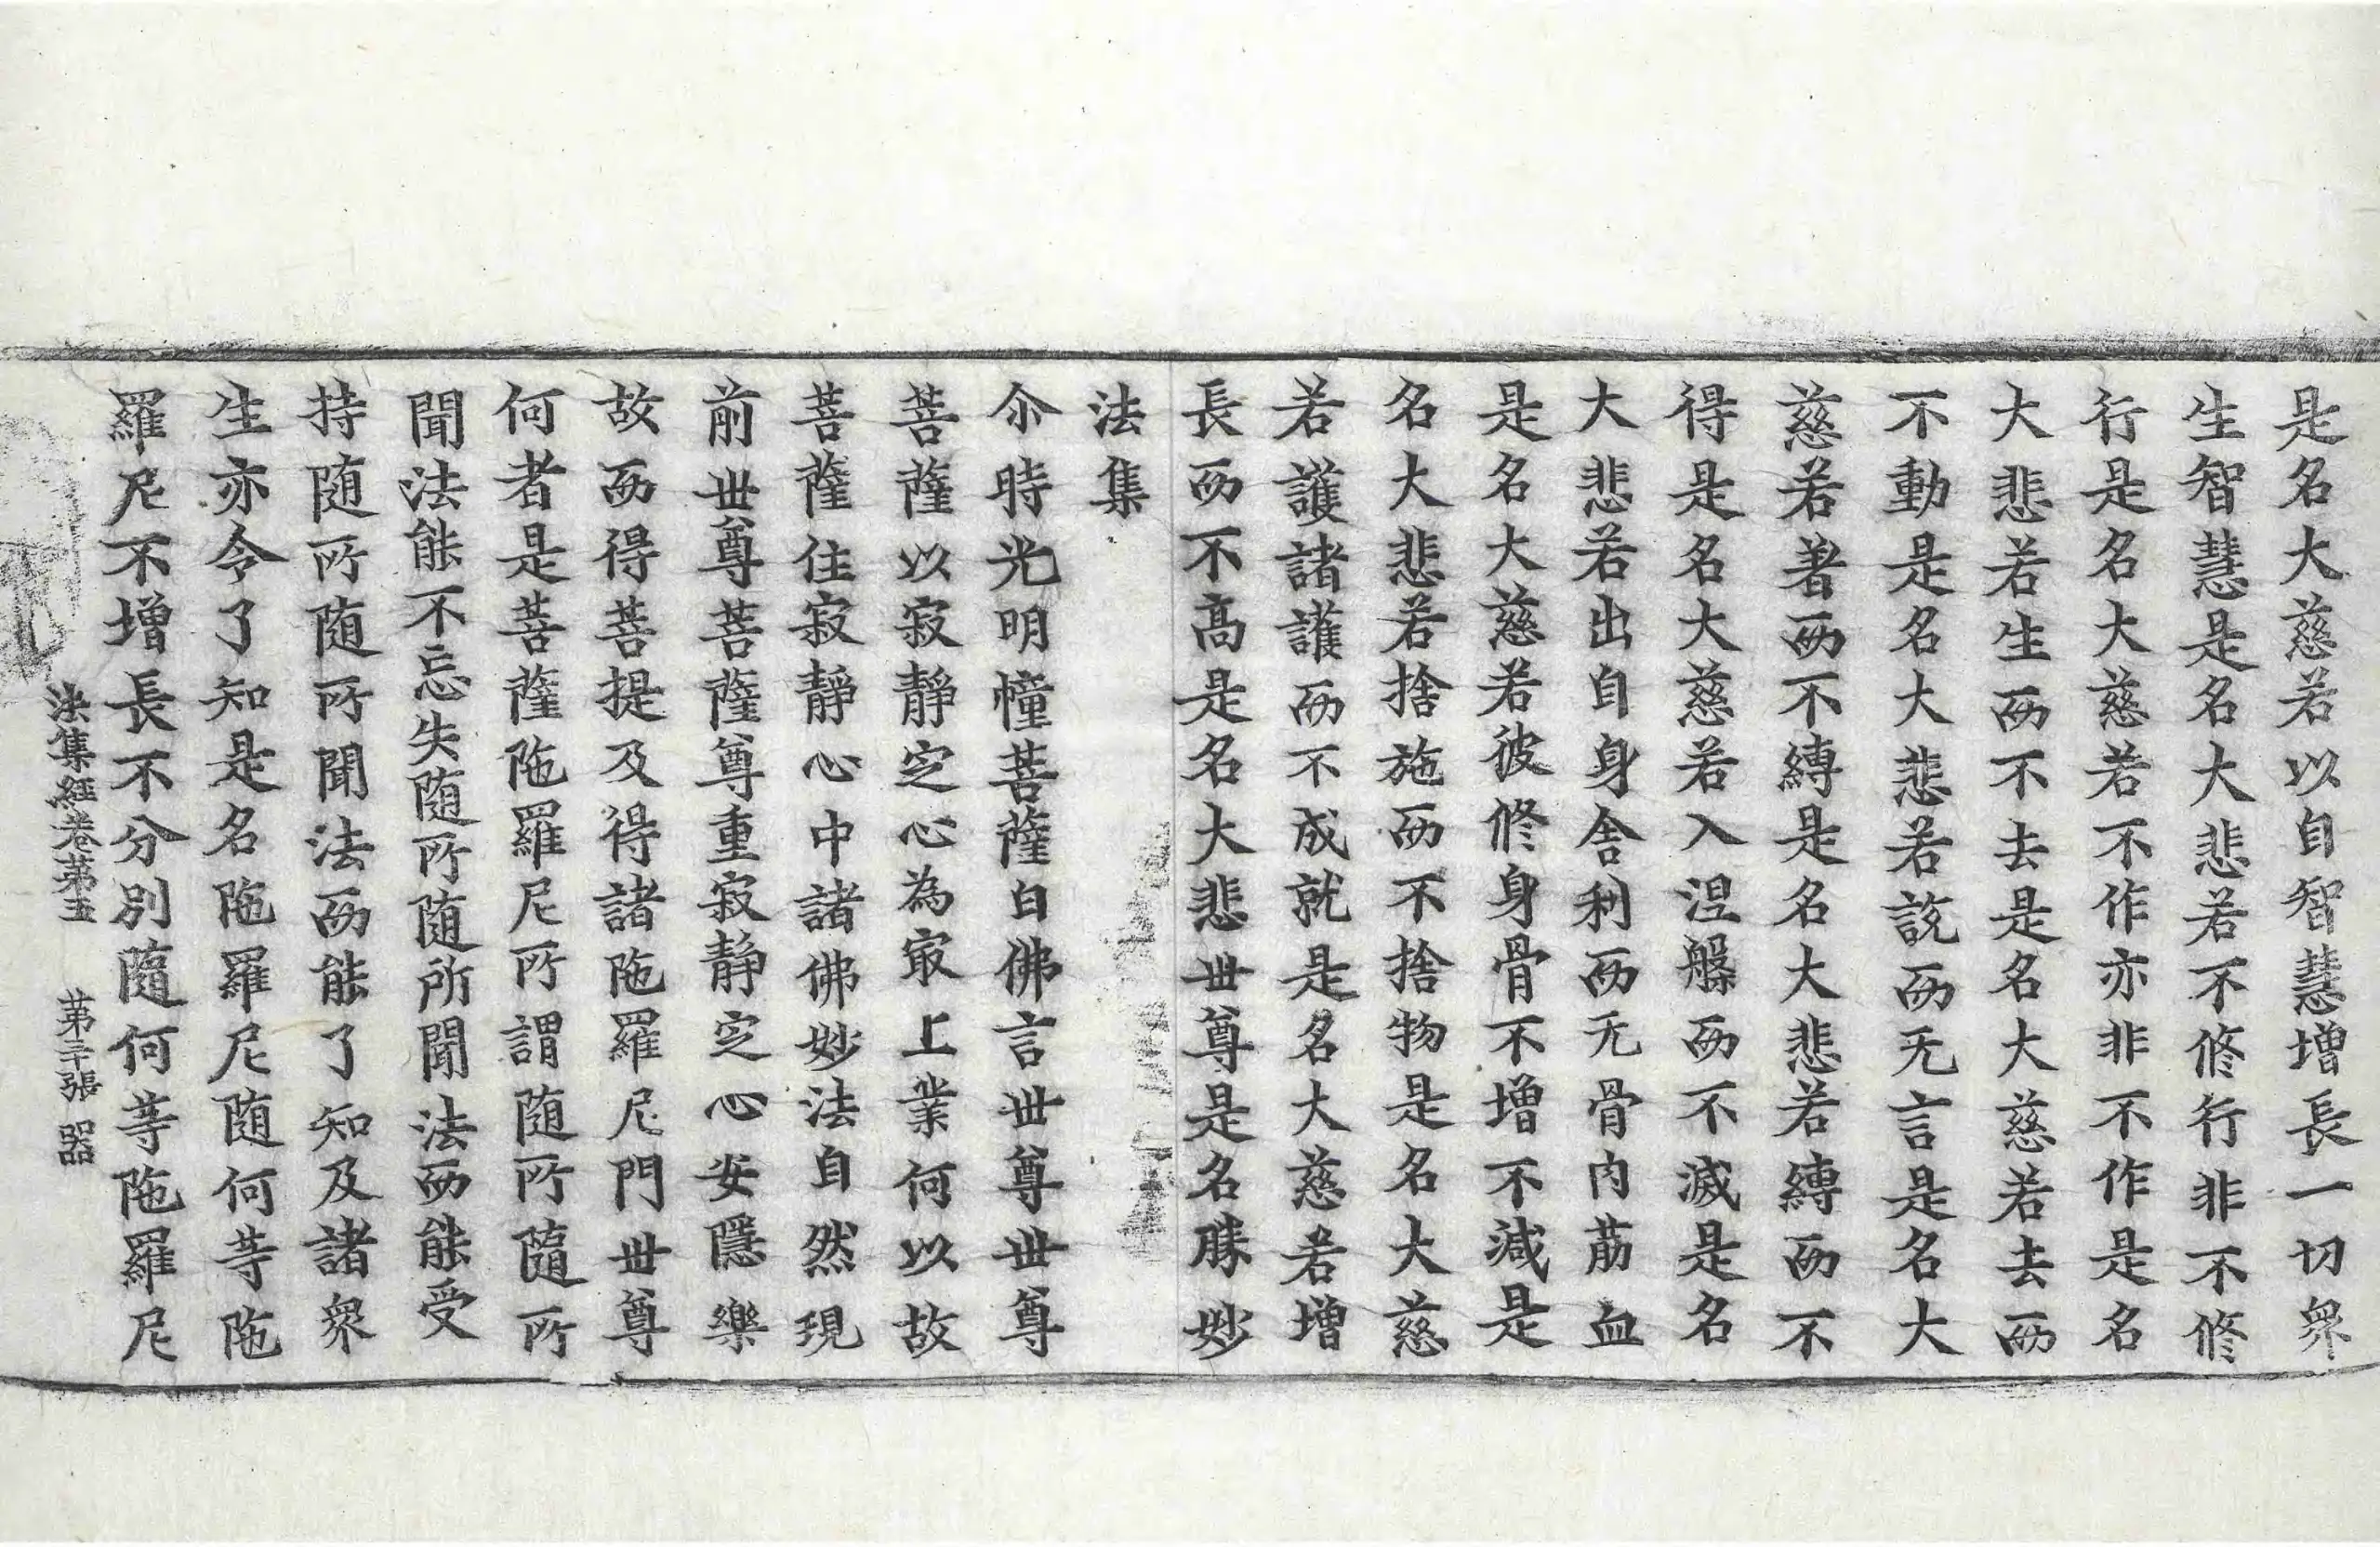 是名大慈若以自智慧增長一切衆
生智慧是名大悲若不修行非不修
行是名大慈若不作亦非不作是名
大悲若生而不去是名大慈若去而
不動是名大悲若說而无言是名大
慈若著而不縛是名大悲若縛而不
得是名大慈若入涅槃而不滅是名
大悲若出自身舍利而无骨肉筋血
是名大慈若彼修身骨不增不減是
名大悲若捨施而不捨物是名大慈
若護諸護而不成就是名大慈若增
長而不高是名大悲世尊是名勝妙
法集
尒時光明幢菩薩白佛言世尊世尊
菩薩以寂靜定心為冣上業何以故
菩薩住寂靜心中諸佛妙法自然現
前世尊菩薩尊重寂靜定心安隱樂
故而得菩提及得諸陁羅尼門世尊
何者是菩薩陁羅尼所謂随所隨所
聞法能不忘失随所随所聞法而能受
持随所随所聞法而能了知及諸衆
生亦令了知是名陁羅尼随何等陁
羅尼不增長不分別隨何等陁羅尼
法集經卷第五　第三十張　器